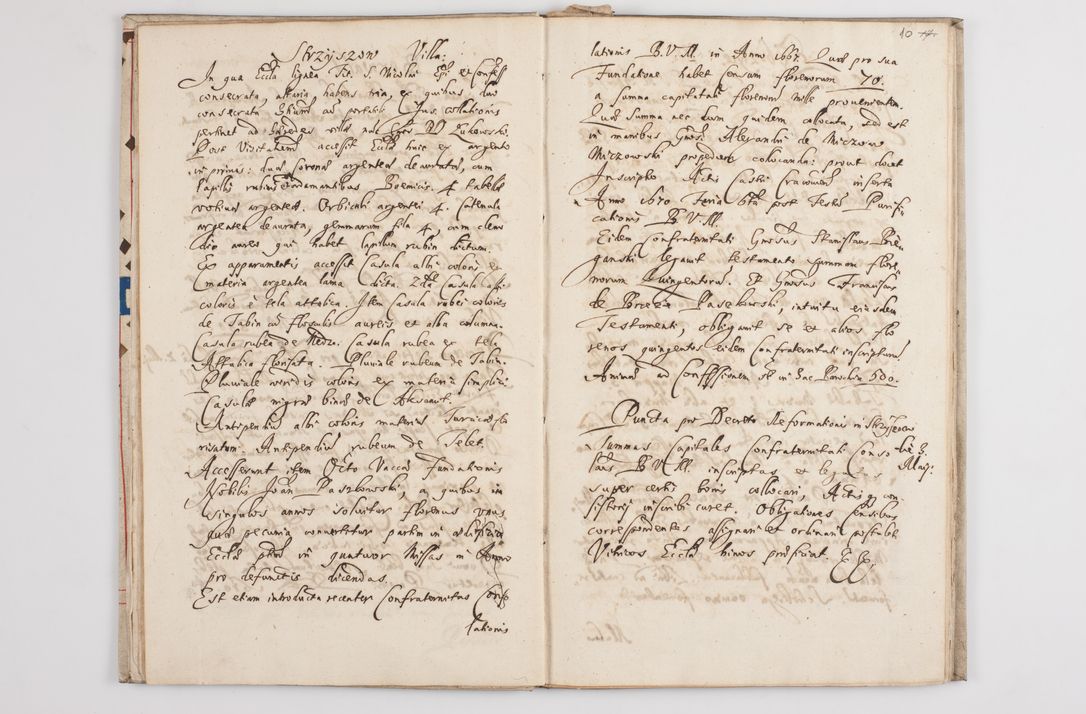 Strzyszow Villa.
In qua Eccla lignea Tit. S. Nicolai Epi et Conff
consecrata, altaria habens tria, ex quibus duo
consecrata ad portatile. Jus collationis
pertinet ad villæ nat. Zukowski.
Post Visitationem accessit Eccla huic ex argento
in primis: duæ Coronæ argenteæ deauratæ, cum
lapillis rubinis adamantibus Boemicis. 4 tabellæ
votivæ argenteæ. Orbiculi argentei 4. Catenula
argentea deaurata, gemmarum fila 4, cum cleno
dio aureo qui habet lapillum rubin dictum.
Ex apparamentis accessit Casula albi coloris ex
materia argentea lama dicta. 2da Casula albi
coloris è tela attalica. Item Casula rubei coloris
de Tabin cū flosculis aureis et alba columna.
Casula rubea de Casula rubea ex tela
Attalica florizata. Pluviale rubeum de Tabin.
Pluviale viridis coloris ex materia simplici
Casulæ nigræ binæ de
Antipendiū albi coloris materiæ Turcicæ flo
risatum. Antipendiū rubeum de Telet.
Accesserunt item Octo Vaccæ fundationis
Nobilis Joān Paszkowski, a quibus in
singulos annos solvitur florenus unus,
quæ pecunia convertitur partim in
Ecclæ ptim in quatuor Missas in Anno
pro defunctis dicendas.
Est etiam introducta recenter Confraternitas Conso
lationis
10
lationis B. V. M. in Anno 1667. Quæ pro sua
Fundatione habet Censum florenorum 70.
a summa capitali florenorū mille provenientem.
Quæ summa nec dum quidem collocata, sed est
in manibus Gnosi Alexandri de Miczow
Miczowski propediem collocanda: prout docet
Inscriptio Actis Castri Cracovien inserta
Anno 1670 Feria 6ta post Festū Purifi
cationis B. V. M.
Eidem Confraternitati Gnosus Stanislaus Bie
ganski legavit testamento summam flore
norum Quingentorū. Et Gnosus Franciscus
de Brzezie Paszkowski, intuitu eiusdem
Testamenti, obligavit se et alios flo
renos quingentos eidem Confraternitati inscripturū.
Animæ ad Confessionem st in hac Parochia 500.
Puncta pro Decreto Reformationis in Strzyszow
die 3. Maij.
Summas Capitales Confraternitati Conso
lanis B. V. M. inscriptas et
super certis bonis collocari, Actis q con
sistorij inscribi curet. Obligationes censibus
correspondentes assignari et ordinari postulet
Vitricos Ecclæ binos præficiat.